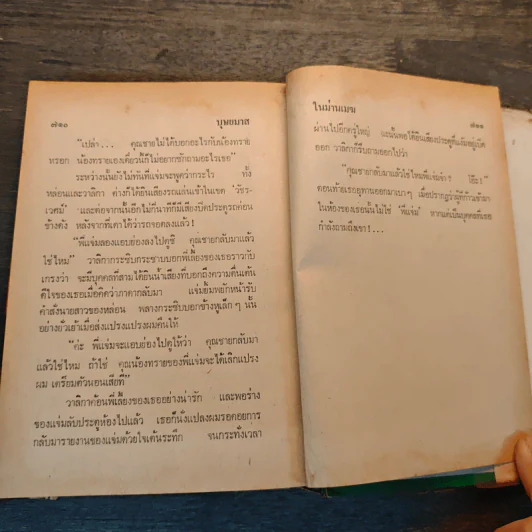 ๗๑๐ บุษยมาส
"เปล่า... คุณชายไม่ได้บอกอะไรกับน้องทราย
ทรอก น้องทรายเองเดี๋ยวนี้ก็ไม่อยากซักถามอะไรเธอ"
ระหว่างนั้นยังไม่ทันที่แจ่มจะพูดว่ากระไร ทั้ง
หล่อนและวาลิกา ต่างก็ได้ยินเสียงรถแล่นเข้าในเขต 'วัชร-
เวศม์' และต่อจากนั้นอีกไม่กี่นาทีก็มีเสียงปิดประตูรถค่อน
ข้างดัง หลังจากที่เดาได้ว่ารถจอดลงแล้ว!
"พี่แจ่มลองแอบย่องลงไปดูซิ คุณชายกลับมาแล้ว
ใช่ไหม" วาลิกากระซิบกระซาบบอกพี่เลี้ยงของเธอราวกับ
เกรงว่า จะมีบุคคลที่สามได้ยินน้ำเสียงที่บอกถึงความตื่นเต้น
ดีใจของเธอเมื่อคิดว่าภาดากลับมา แจ่มยิ้มพยักหน้ารับ
คำสั่งนายสาวของหล่อน พลางกระซิบบอกข้างหูเล็ก ๆ นั้น
อย่างยั่วเย้าเมื่อส่งแปรงแปรงผมคืนให้
"ค่ะ พี่แจ่มจะแอบย่องไปดูให้ว่า คุณชายกลับมา
แล้วใช่ไหม ถ้าใช่ คุณน้องทรายของพี่แจ่มจะได้เลิกแปรง
ผม เตรียมตัวนอนเสียที"
วาลิกาค้อนพี่เลี้ยงของเธออย่างน่ารัก และพอร่าง
ของแจ่มลับประตูห้องไปแล้ว เธอก็นั่งแปลงผมรอคอยการ
กลับมารายงานของแจ่มด้วยใจเต้นระทึก จนกระทั่งเวลา
ในม่านเมฆ ๗๑๑
ผ่านไปอีกครู่ใหญ่ และนั่นพอได้ยินเสียงประตูที่แง้มอยู่เปิด
ออก วาลิกาก็รีบถามออกไปว่า
"คุณชายกลับมาแล้วใช่ไหมพี่แจ่มจ๋า! โอ๊ะ!"
ตอนท้ายเธออุทานออกมาเบา ๆ เมื่อปรากฏว่าผู้ที่ก้าวเข้ามา
ในห้องของเธอนั้นไม่ใช่ 'พี่แจ่ม' หากแต่เป็นบุคคลที่เธอ
กำลังถามถึงเขา!...